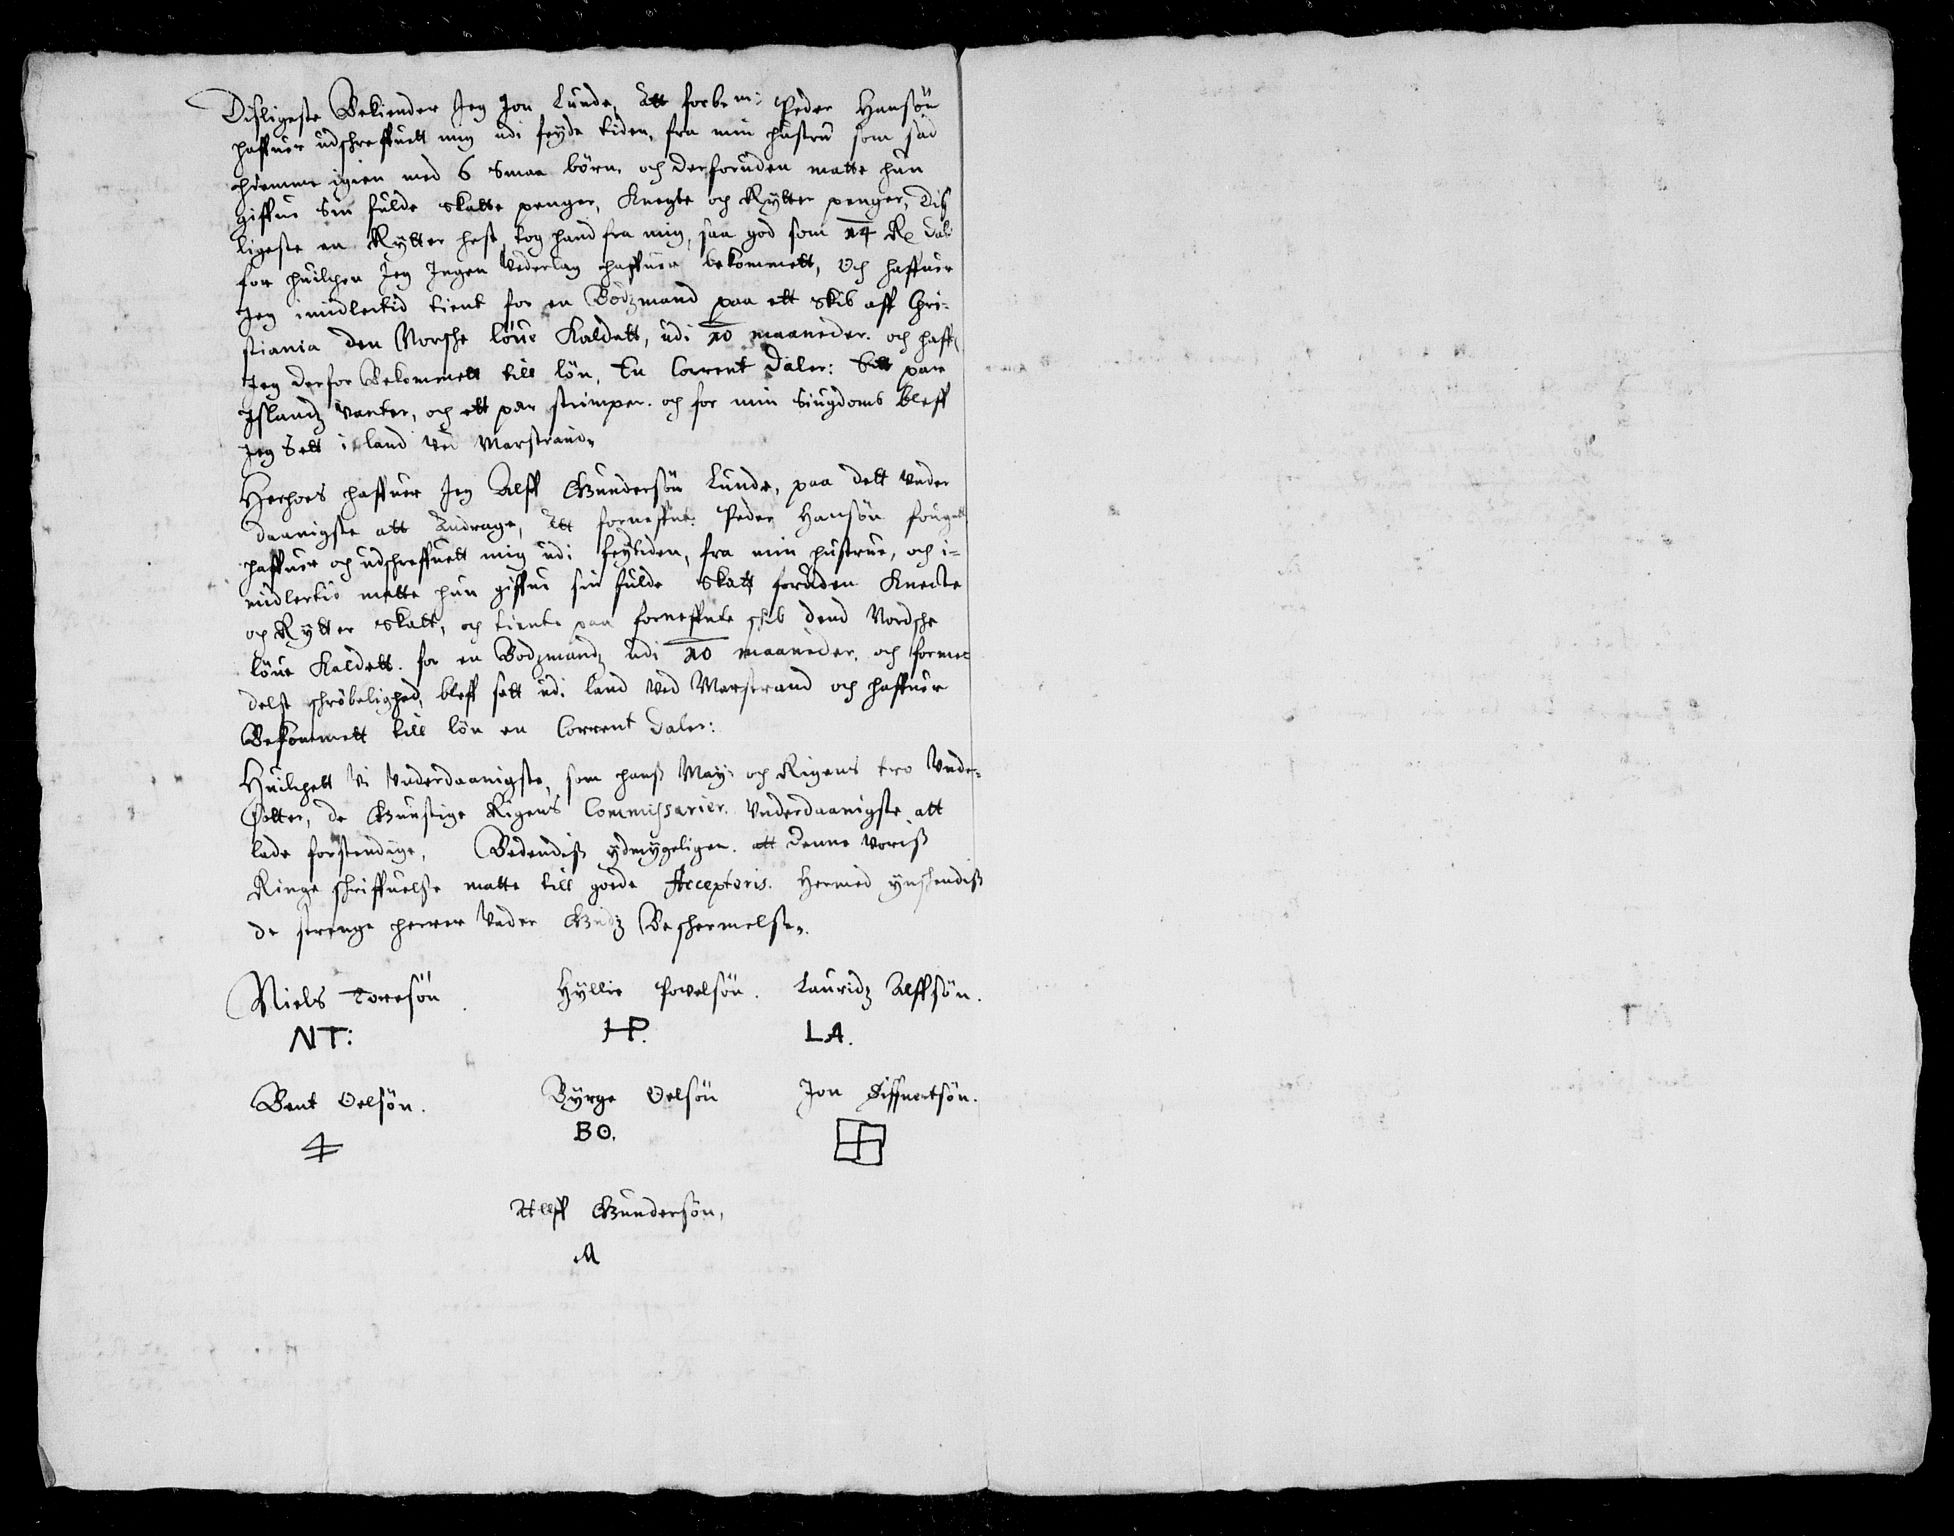 Disligeste Bekiender Jeg Jon Lunde, Att forbem: Peder Hansön
haffuer udschreffuett mig udi feyde tiden, fra min hustru som sad
hiemme igien med 6 smaa börn, och derforuden matte hun
giffue sin fulde skatte penger, Knegte och Rytter penger, Diß
ligeste en Rytter hest, tog hand fra mig, saa god som 14 R dal:
for huilchen Jeg Ingen Vederlag haffuer bekommett, Och haffuer
Jeg imidlertid tient for en Bodzmand paa ett skib aff Chri-
stiania den Norsche löue Kaldett, udi 10 maaneder. och haff
Jeg derfor Bekommett till lön, En Corrent Daler: Ett par
Islandz vanter, och ett par strimper. och for min siugdoms bleff
Jeg sett i land ved Marstrand.
Herhoes haffuer Jeg Alff Gundersön Lunde, paa dett under
daanigste att Andrage, Att forneffnte Peder Hansön fougett
haffuer och udschreffuett mig udi feytiden, fra min hustrue, och i-
midlertid matte hun giffue sin fulde skatt foruden Knecte
og Rytter skatt, och tiente paa forneffnte skib dend Nordsche
löue Kaldett. for en Bodzmandz udi 10 maaneder. och formed
delst schröbelighed, bleff sett udi land ved Marstrand och haffuer
Bekommett till lön en Corrent daler:
Huilchett Vi underdaanigste, som hans May: och Rigens tro Under-
sotter, de Gunstige Rigens Commissarier. underdaanigste att
lade forstendige, Bedendiß ydmygeligen. att denne voriß
Ringe schriffuelse matte till goede Accepteris. Hermed ynschendiß
de strenge herrer under Gudz Beschermelse.
Niels Toresön. Hyllie Povelsön. Lauridz Alffsön.
NT: HP. LA.
Bent Oelsön. Byrge Oelsön Jon Siffuertsön.
BO.
Allff Gundersön,
A